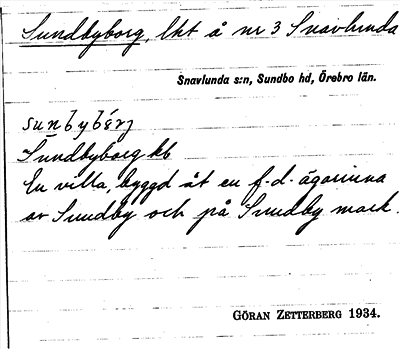 Sundbyborg, lht å nr 3 Snavlunda
Snavlunda s:n, Sundbo hd, Örebro län.
sunbybórj
Sundbyborg kb
En villa, byggd åt en f.d. ägarinna
av Sundby och på Sundby mark.
GÖRAN ZETTERBERG 1934.